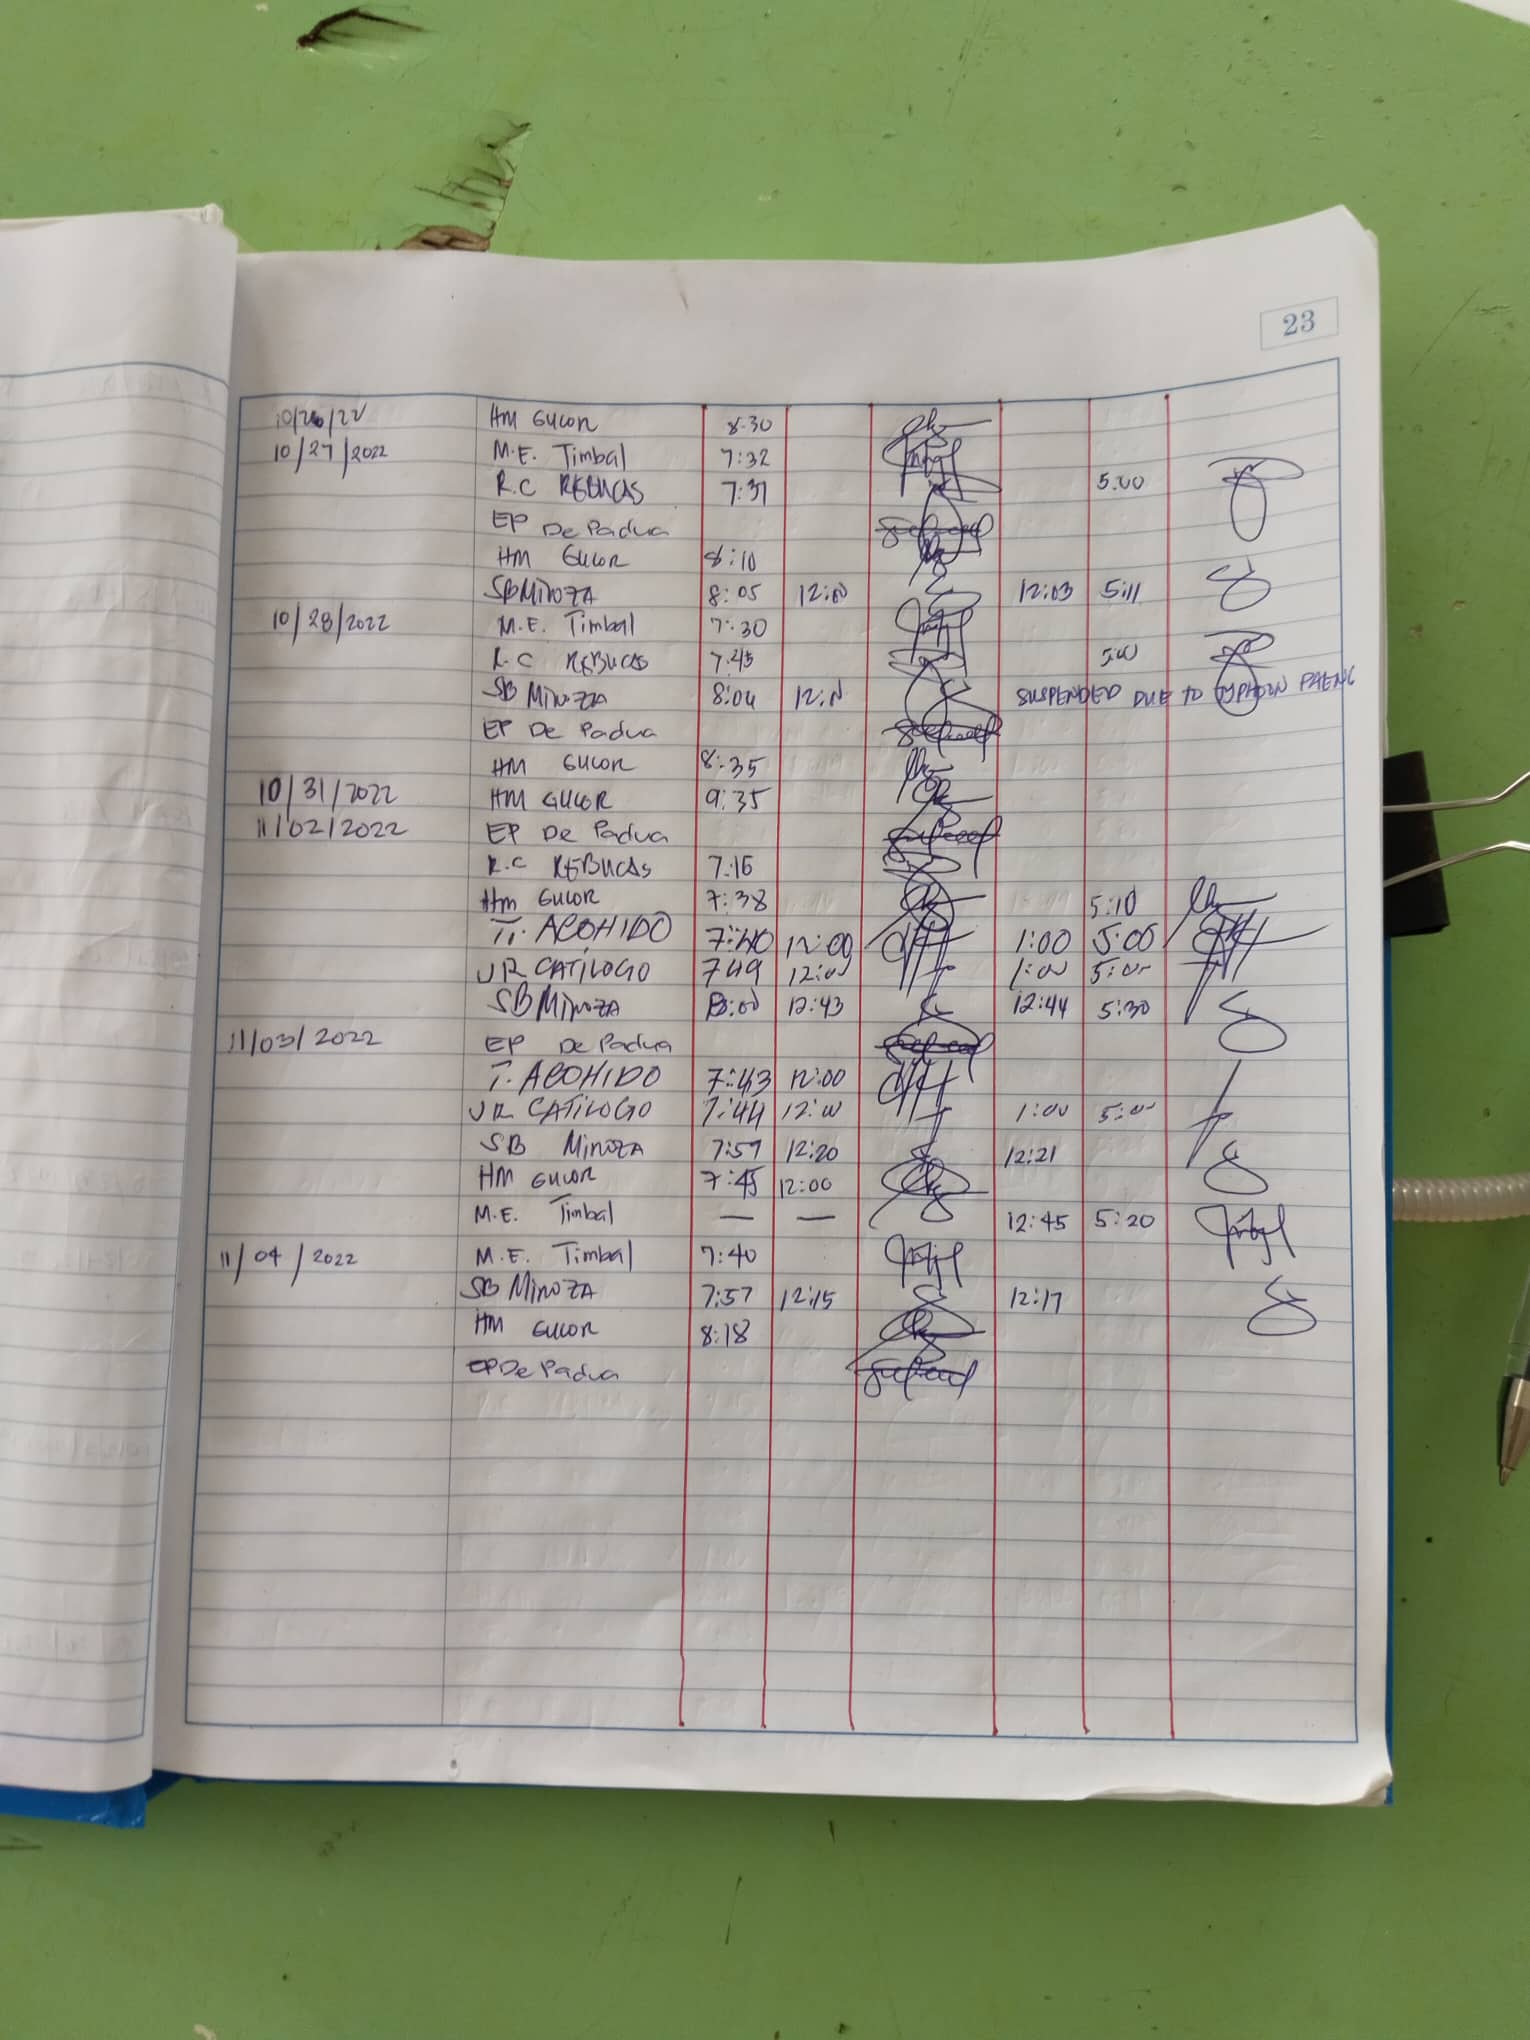 23
10/26/22 HM GUCOR 8:30
10/27/2022 M.E. Timbal 7:32
R.C REBUCAS 7:31 5:00
EP De Padua
HM GUCOR 8:10
SB MINOZA 8:05 12:00 12:03 5:11
10/28/2022 M.E. Timbal 7:30
R.C REBUCAS 7:45 5:00
SB MINOZA 8:04 12:N SUSPENDED DUE TO TYPHOON PAENG
EP De Padua
HM GUCOR 8:35
10/31/2022 HM GUCOR 9:35
11/02/2022 EP De Padua
R.C REBUCAS 7:15
HM GUCOR 7:38 5:10
T. ACOHIDO 7:40 12:00 1:00 5:00
JR CATILOGO 7:49 12:00 1:00 5:00
SB MINOZA 8:00 12:43 12:44 5:30
11/03/2022 EP De Padua
T. ACOHIDO 7:43 12:00
JR CATILOGO 7:44 12:00 1:00 5:00
SB MINOZA 7:57 12:20 12:21
HM GUCOR 7:45 12:00
M.E. Timbal — — 12:45 5:20
11/04/2022 M.E. Timbal 7:40
SB MINOZA 7:57 12:15 12:17
HM GUCOR 8:18
EP De Padua